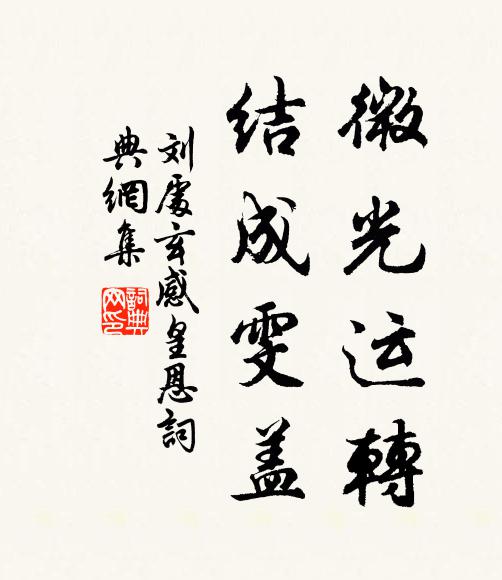 微光运轉
结成雯盖
刘處玄感皇恩詞
典網集
詞典
网印